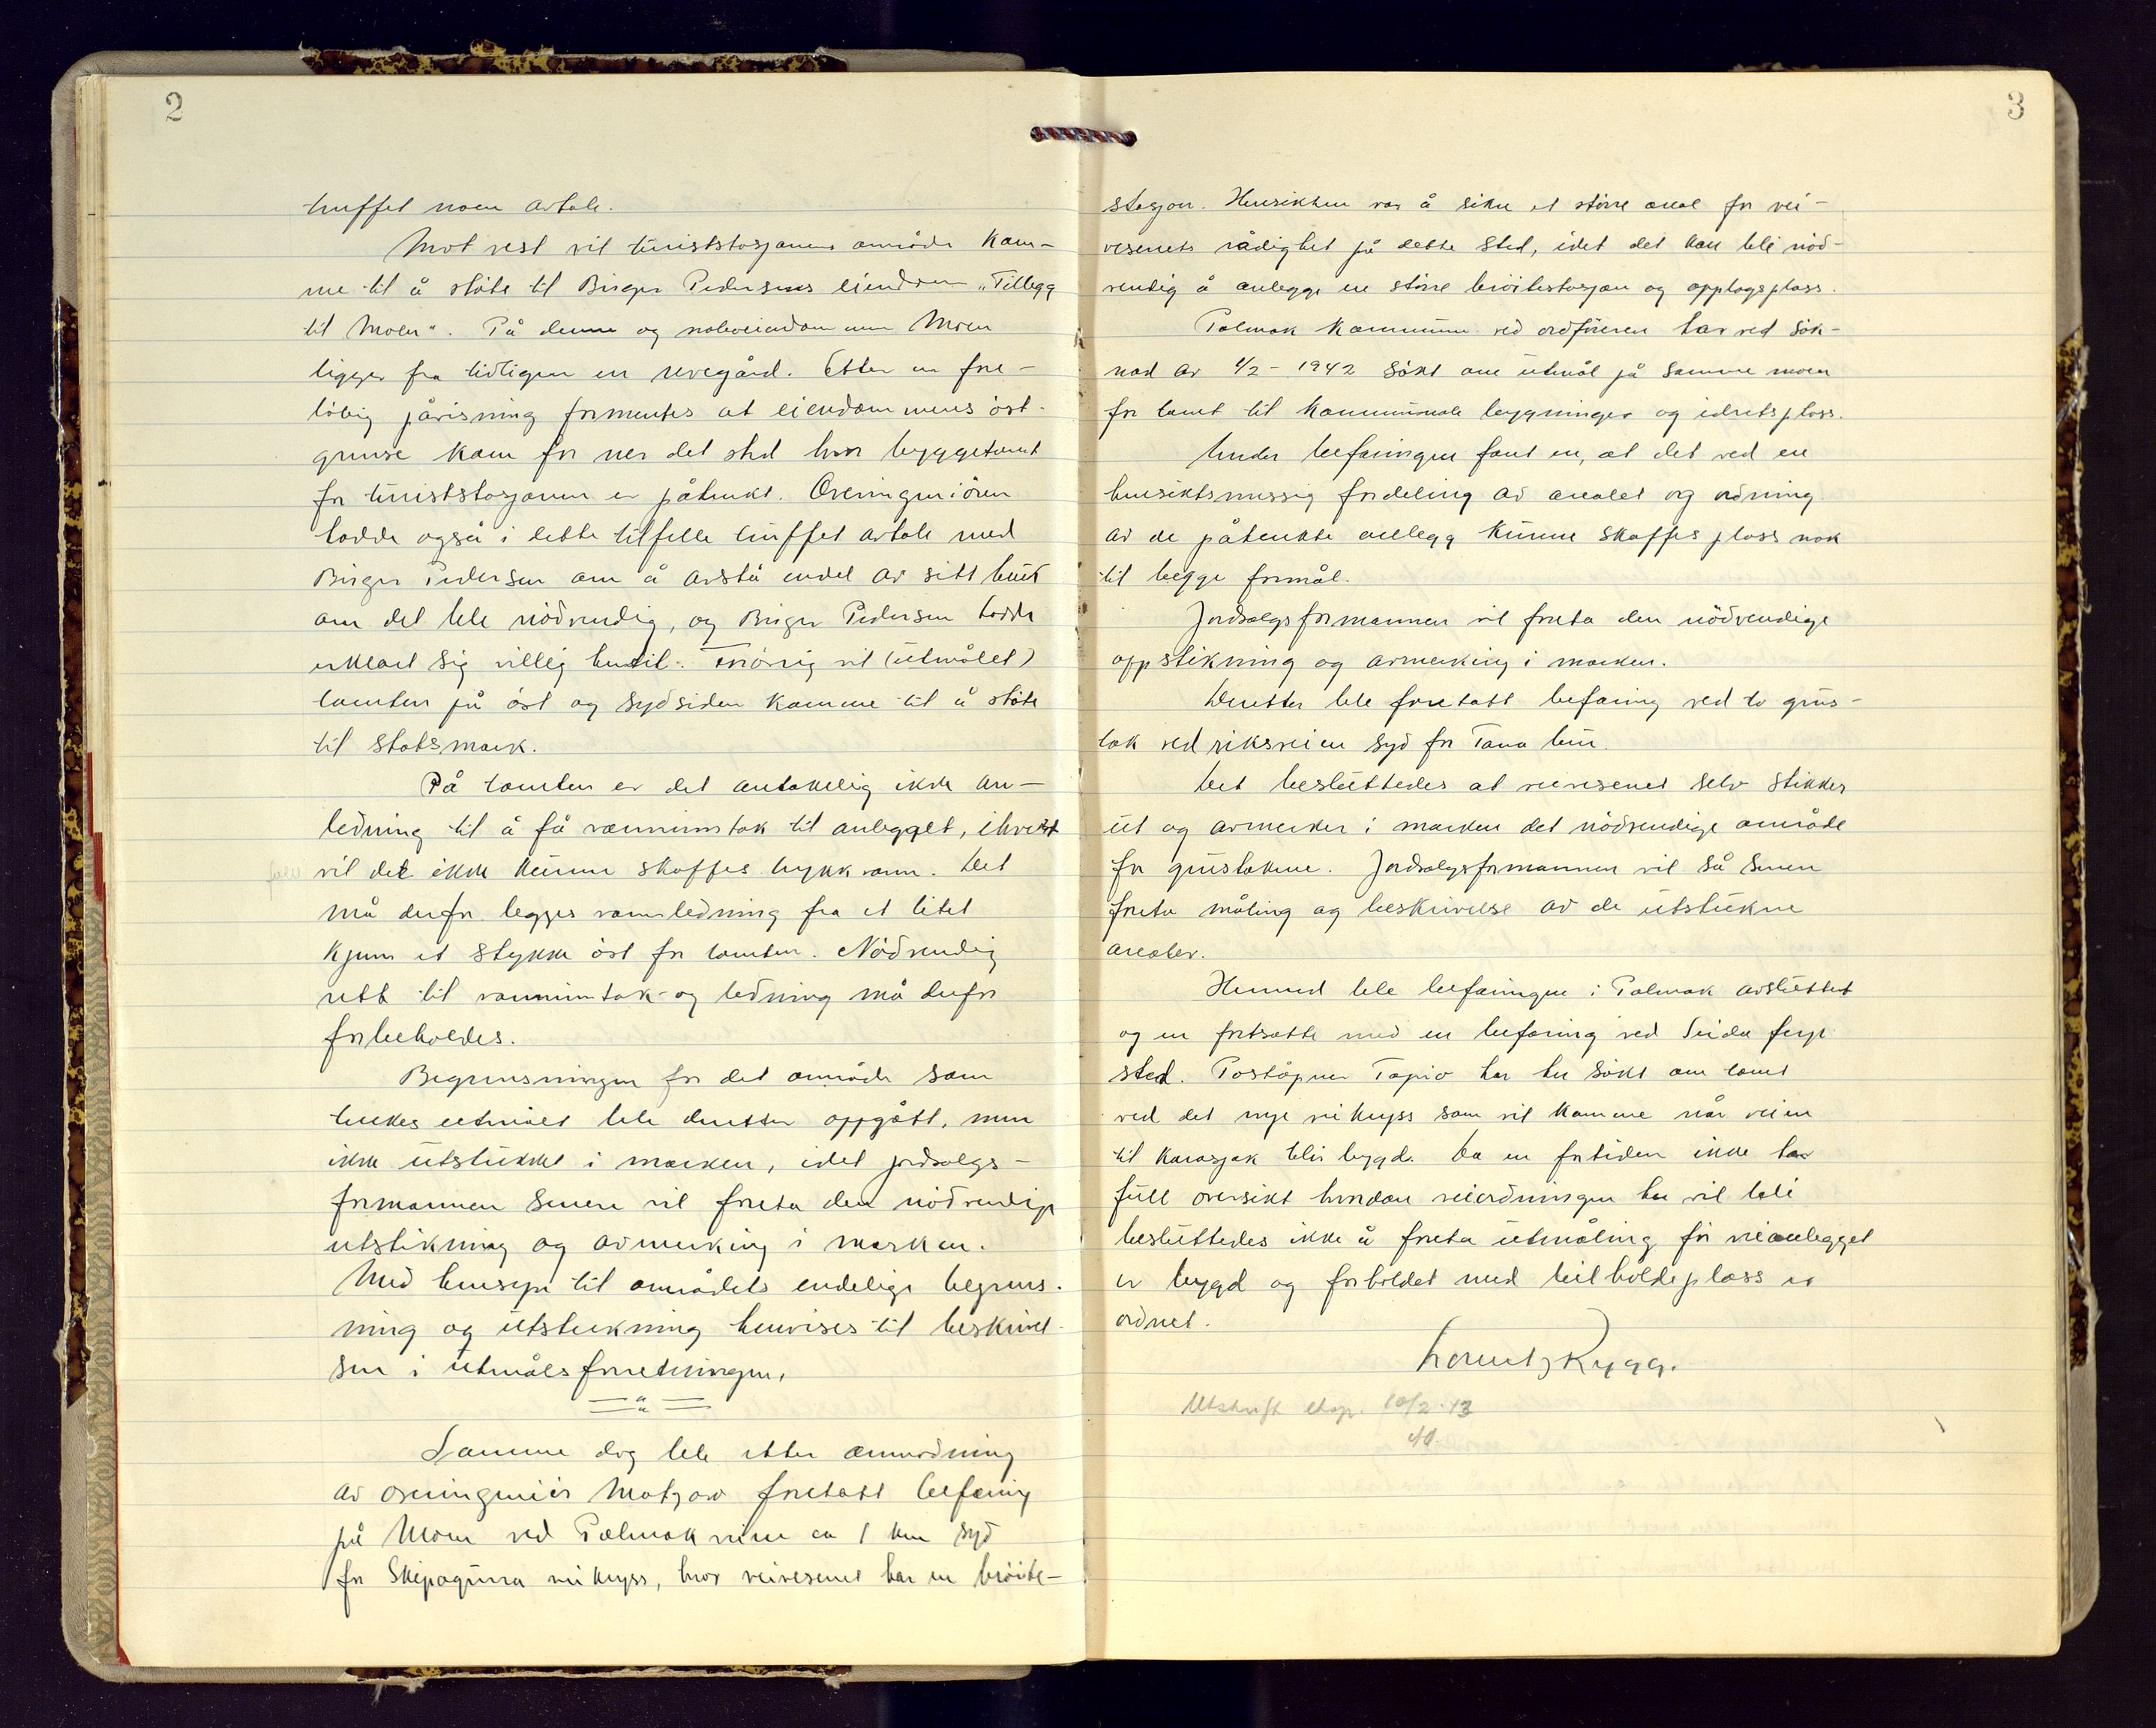 2
truffet noen avtale.
Mot vest vil turiststasjonens område kom-
me til å støte til Birger Pedersens eiendom „Tillegg
til Moen“. På denne og naboeiendommen Moen
ligger fra tidligere en revegård. Etter en fore-
løbig påvisning formentes at eiendommens øst-
grense kom for nær det sted hvor byggetomt
for turiststasjonen er påtenkt. Overingeniøren
hadde også i dette tilfelle truffet avtale med
Birger Pedersen om å avstå endel av sitt bruk
om det ble nødvendig, og Birger Pedersen hadde
erklært sig villig hertil. Forøvrig vil (utmålet)
tomten på øst og sydsiden komme til å støte
til statsmark.
På tomten er det antakelig ikke an-
ledning til å få vanninntak til anlegget, ihvert
fall vil det ikke kunne skaffes trykkvann. Det
må derfor legges vannledning fra et litet
kjern et stykke øst for tomten. Nødvendig
rett til vanninntak- og ledning må derfor
forbeholdes.
Begrensningen for det område som
tenkes utmålt ble deretter oppgått, men
ikke utstukket i marken, idet jordsalgs-
formannen senere vil foreta den nødvendige
utstikning og avmerking i marken.
Med hensyn til områdets endelige begrens-
ning og utstikning henvises til beskrivel-
sen i utmålsforretningen.
Samme dag ble etter anmodning
av overingeniør Matzow foretatt befaring
på Moen ved Polmakveien ca 1 km syd
for Skipagurra veikryss, hvor veivesenet har en brøite-
3
stasjon. Hensikten var å sikre et större areal for vei-
vesenets rådighet på dette sted, idet det kan bli nød-
vendig å anlegge en større brøitestasjon og opplagsplass.
Polmak kommune ved ordføreren har ved søk-
nad av 1/2 - 1942 søkt om utmål på samme moen
for tomt til kommunale bygninger og idretsplass.
Under befaringen fant en, at det ved en
hensiktsmessig fordeling av arealet og ordning
av de påtenkte anlegg kunne skaffes plass nok
til begge formål.
Jordsalgsformannen vil foreta den nødvendige
oppstikning og avmerking i marken.
Deretter ble foretatt befaring ved to grus-
tak ved riksveien syd for Tana bru.
Det besluttedes at veivesenet selv stikker
ut og avmerker i marken det nødvendige område
for grustakene. Jordsalgsformannen vil så senere
foreta måling og beskrivelse av de utstukne
arealer.
Hermed ble befaringen i Polmak avsluttet
og en fortsatte med en befaring ved Seida ferje-
sted. Poståpner Tapio har her søkt om tomt
ved det nye veikryss som vil komme når veien
til Karasjok blir bygd. Da en fortiden ikke har
full oversikt hvordan veiordningen her vil bli
besluttedes ikke å foreta utmåling før veianlegget
er bygd og forholdet med bilholdeplass er
ordnet.
Lorentz Rygg.
Utskrift eksp. 10/2-43